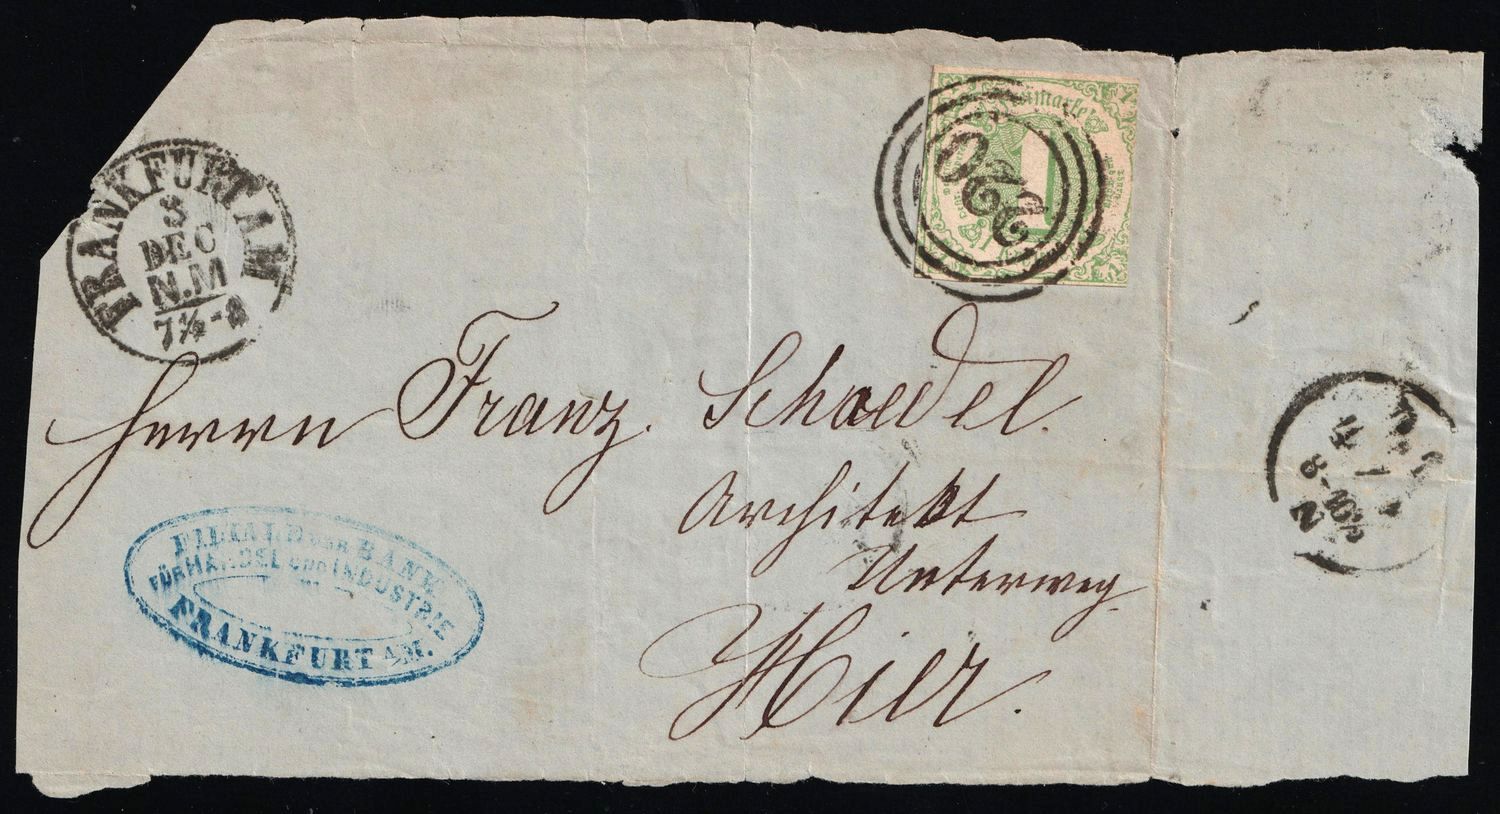 FRANKFURT A M
3
DEC
N.M
7½-8
220
1
Herrn Franz Schaedel.
Architekt
Unterweg
Hier.
FILIALE DER BANK
FÜR HANDEL UND INDUSTRIE
FRANKFURT A/M.